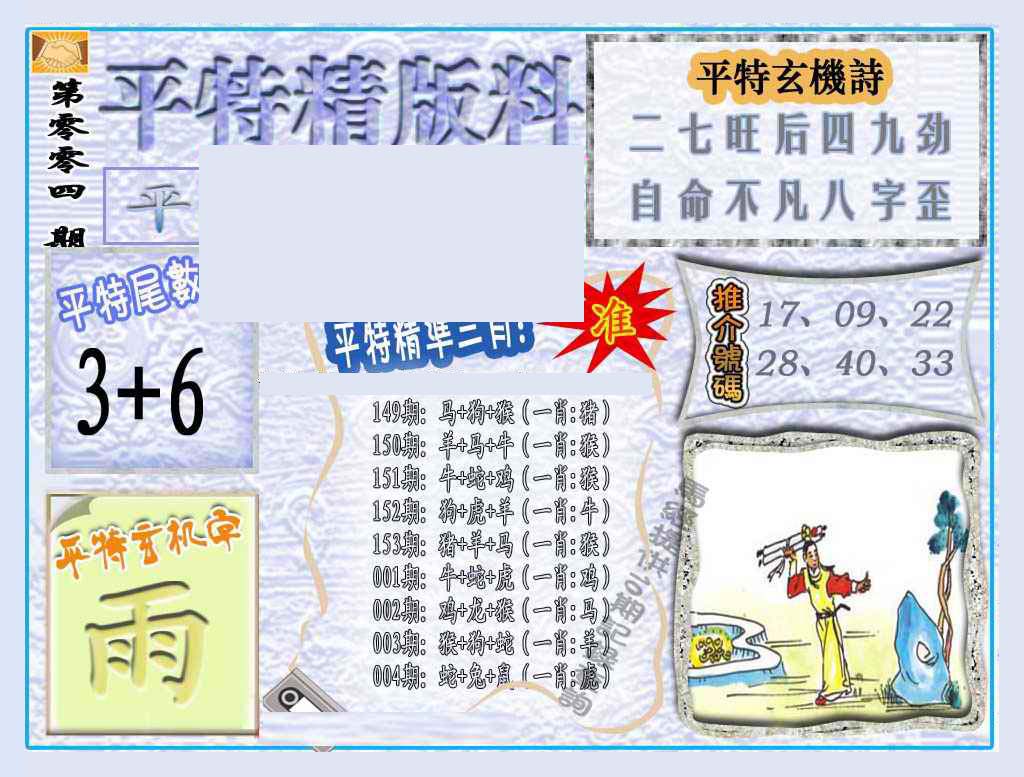 第零零四期
平特精版料
平
平特玄機詩
二七旺后四九劲
自命不凡八字歪
平特尾數
3+6
平特精準三肖!
准
推介號碼
17、09、22
28、40、33
149期: 马+狗+猴(一肖:猪)
150期: 羊+马+牛(一肖:猴)
151期: 牛+蛇+鸡(一肖:猴)
152期: 狗+虎+羊(一肖:牛)
153期: 猪+羊+马(一肖:猴)
001期: 牛+蛇+虎(一肖:鸡)
002期: 鸡+龙+猴(一肖:马)
003期: 猴+狗+蛇(一肖:羊)
004期: 蛇+兔+鼠(一肖:虎)
平特玄机字
雨